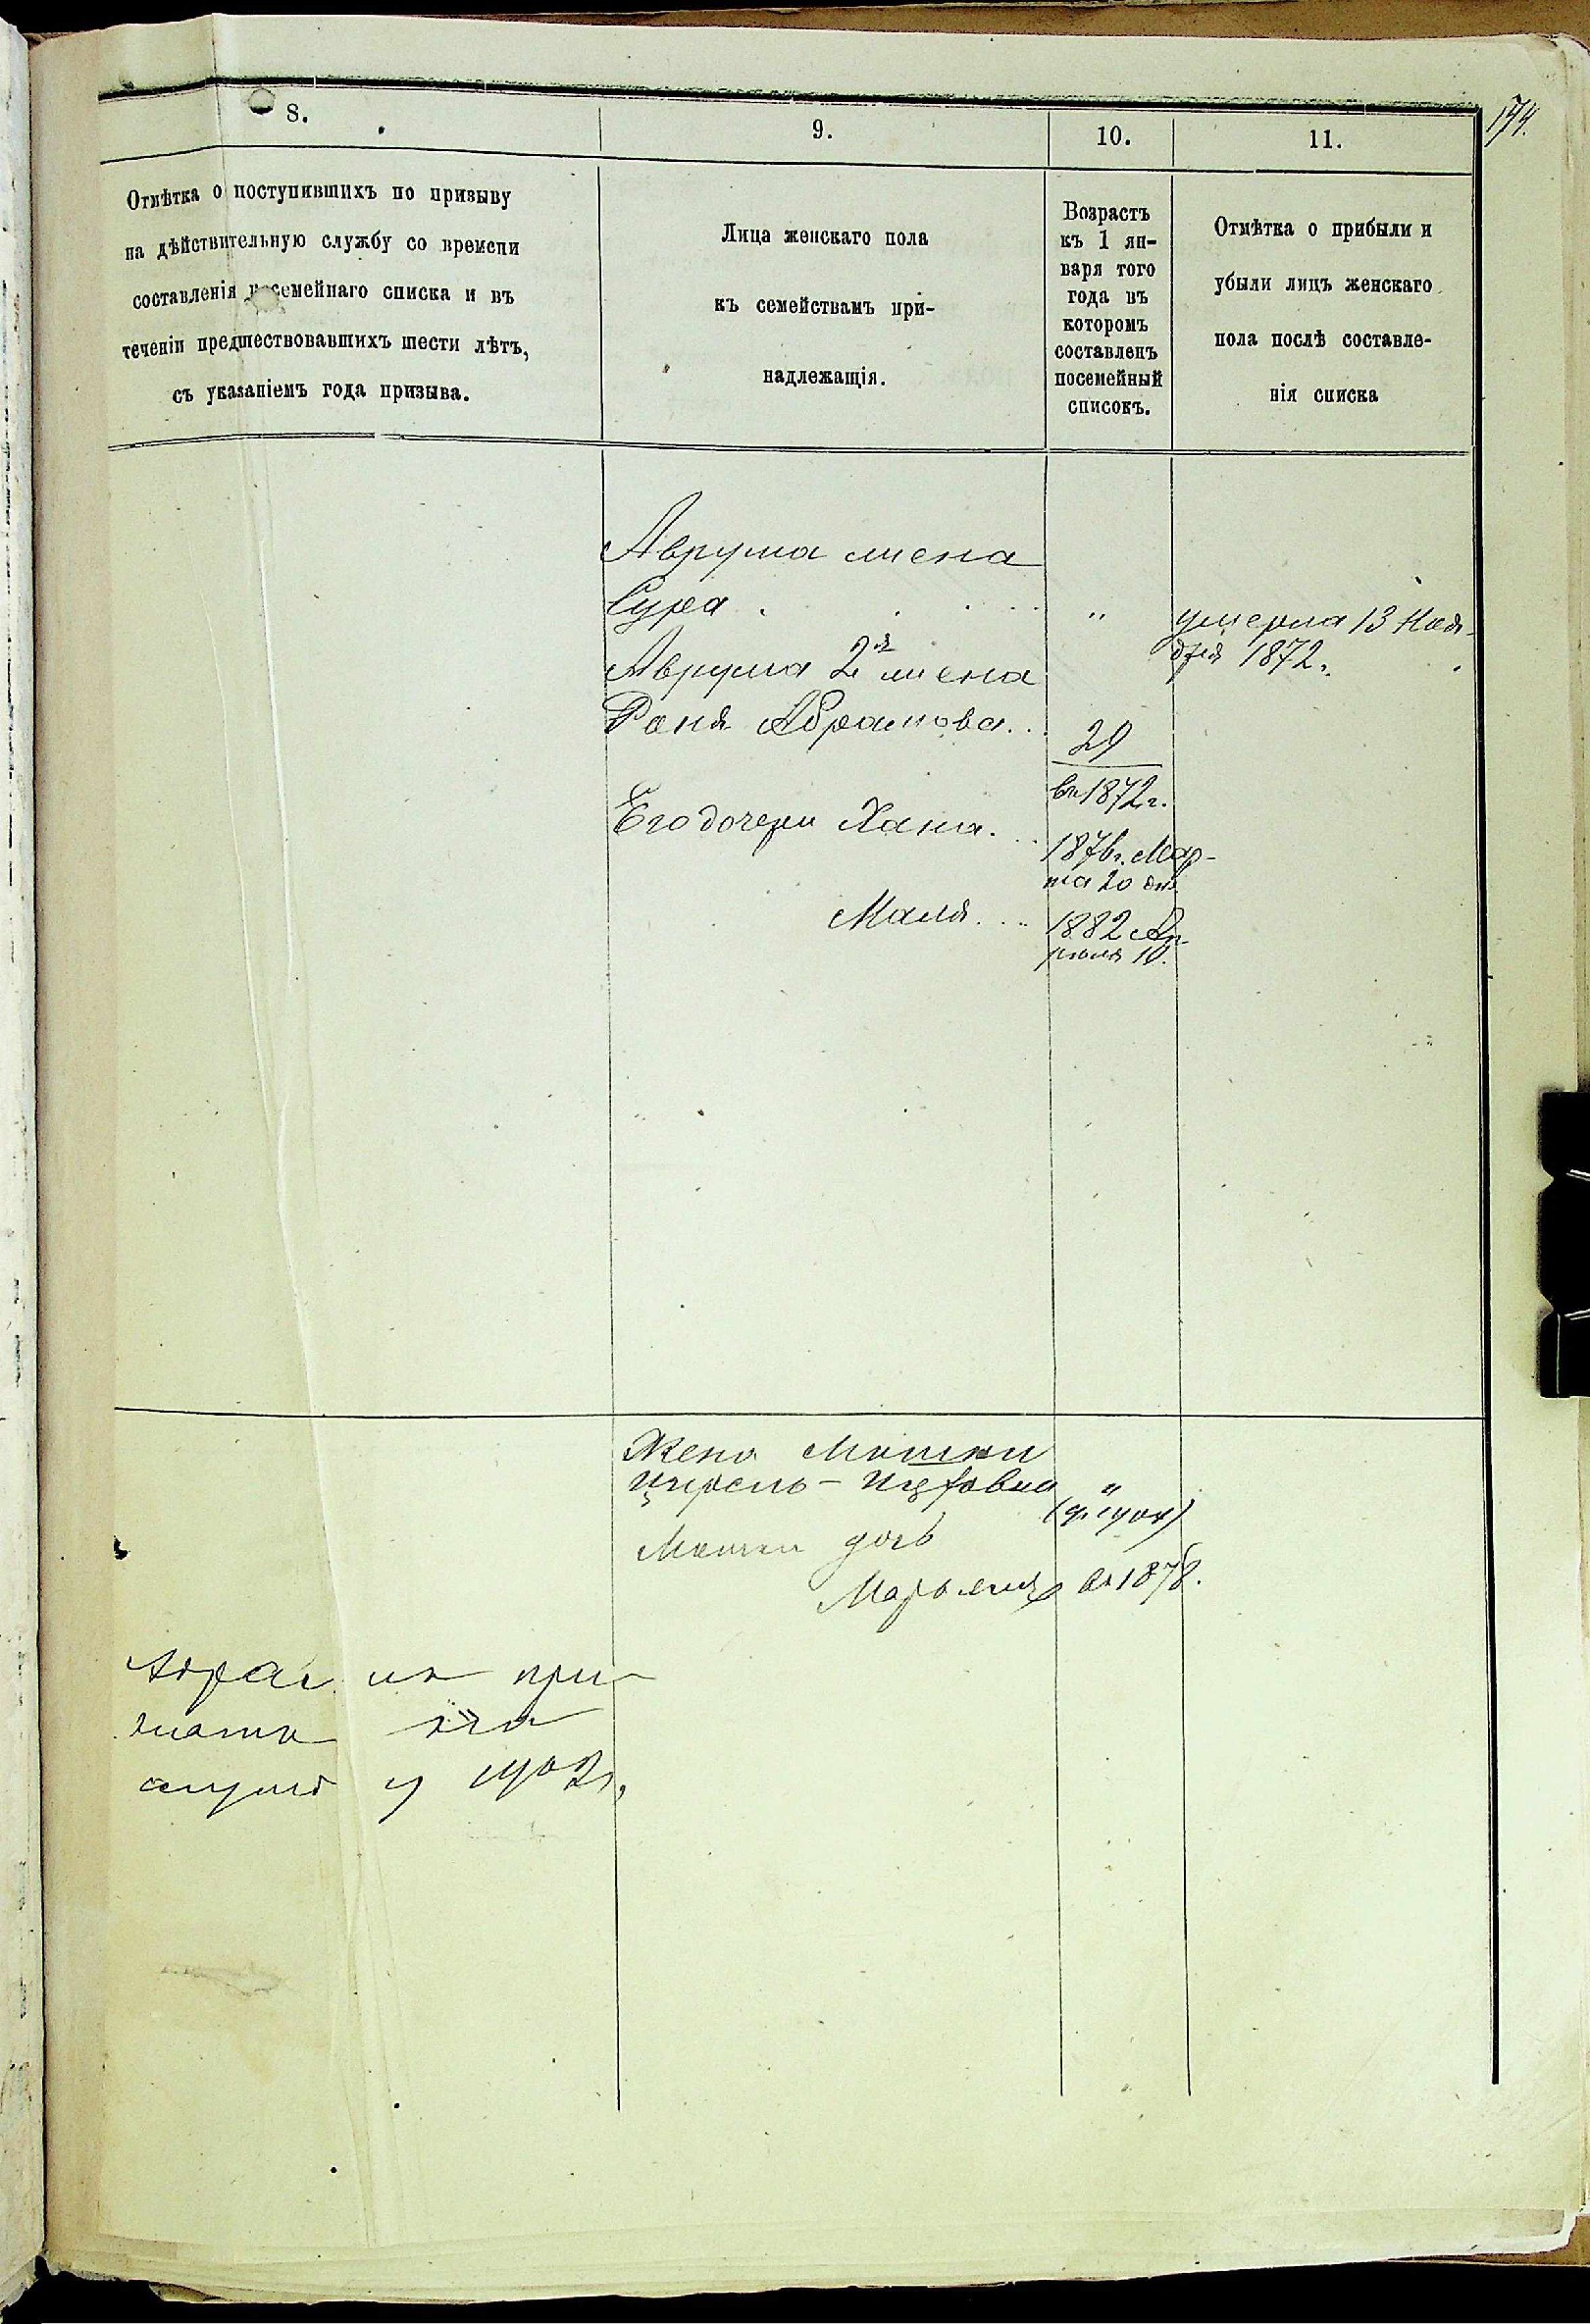 174.
8.
9.
10.
11.
Отмѣтка о поступившихъ по призыву
на дѣйствительную службу со времени
составленія посемейнаго списка и въ
теченіи предшествовавшихъ шести лѣтъ,
съ указаніемъ года призыва.
Лица женскаго пола
къ семействамъ при-
надлежащія.
Возрастъ
къ 1 ян-
варя того
года въ
которомъ
составленъ
посемейный
списокъ.
Отмѣтка о прибыли и
убыли лицъ женскаго
пола послѣ составле-
нія списка
Аврума жена
Сура . . . . „ умерла 13 Нояб-
бря 1872г.
Аврума 2я жена
Рания Абрамова... 29
въ 1872г.
Его дочери Хана... 1876г. Мар-
та 20 дня
Маля... 1882 Ап-
рѣля 10.
Жена Мошки
„
Мошки дочь
въ 1878.
при-
1902г.